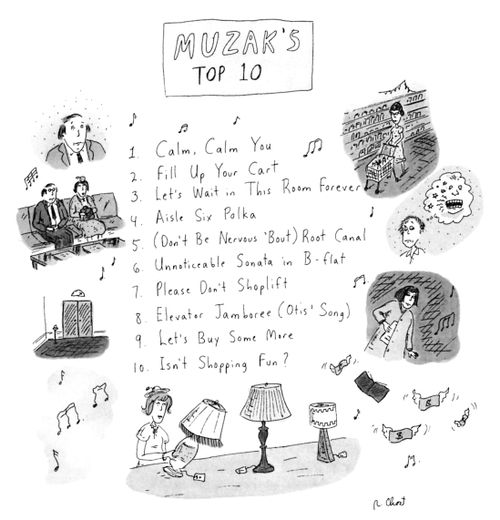 MUZAK'S
TOP 10
1. Calm, Calm You
2. Fill Up Your Cart
3. Let's Wait in This Room Forever
4. Aisle Six Polka
5. (Don't Be Nervous 'Bout) Root Canal
6. Unnoticeable Sonata in B-flat
7. Please Don't Shoplift
8. Elevator Jamboree (Otis' Song)
9. Let's Buy Some More
10. Isn't Shopping Fun?
$
$
R. Chast